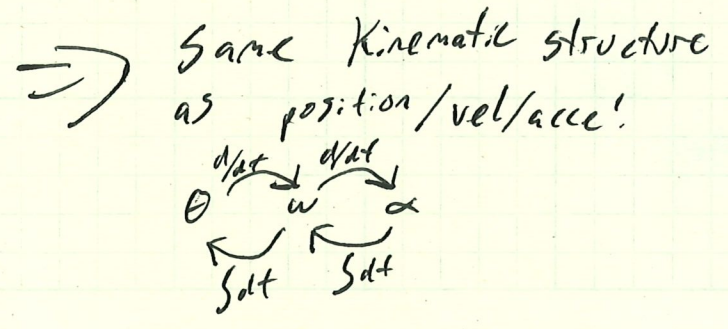 ⇒ Same Kinematic structure
as position/vel/acce!
d/dt d/dt
θ ω α
∫dt ∫dt